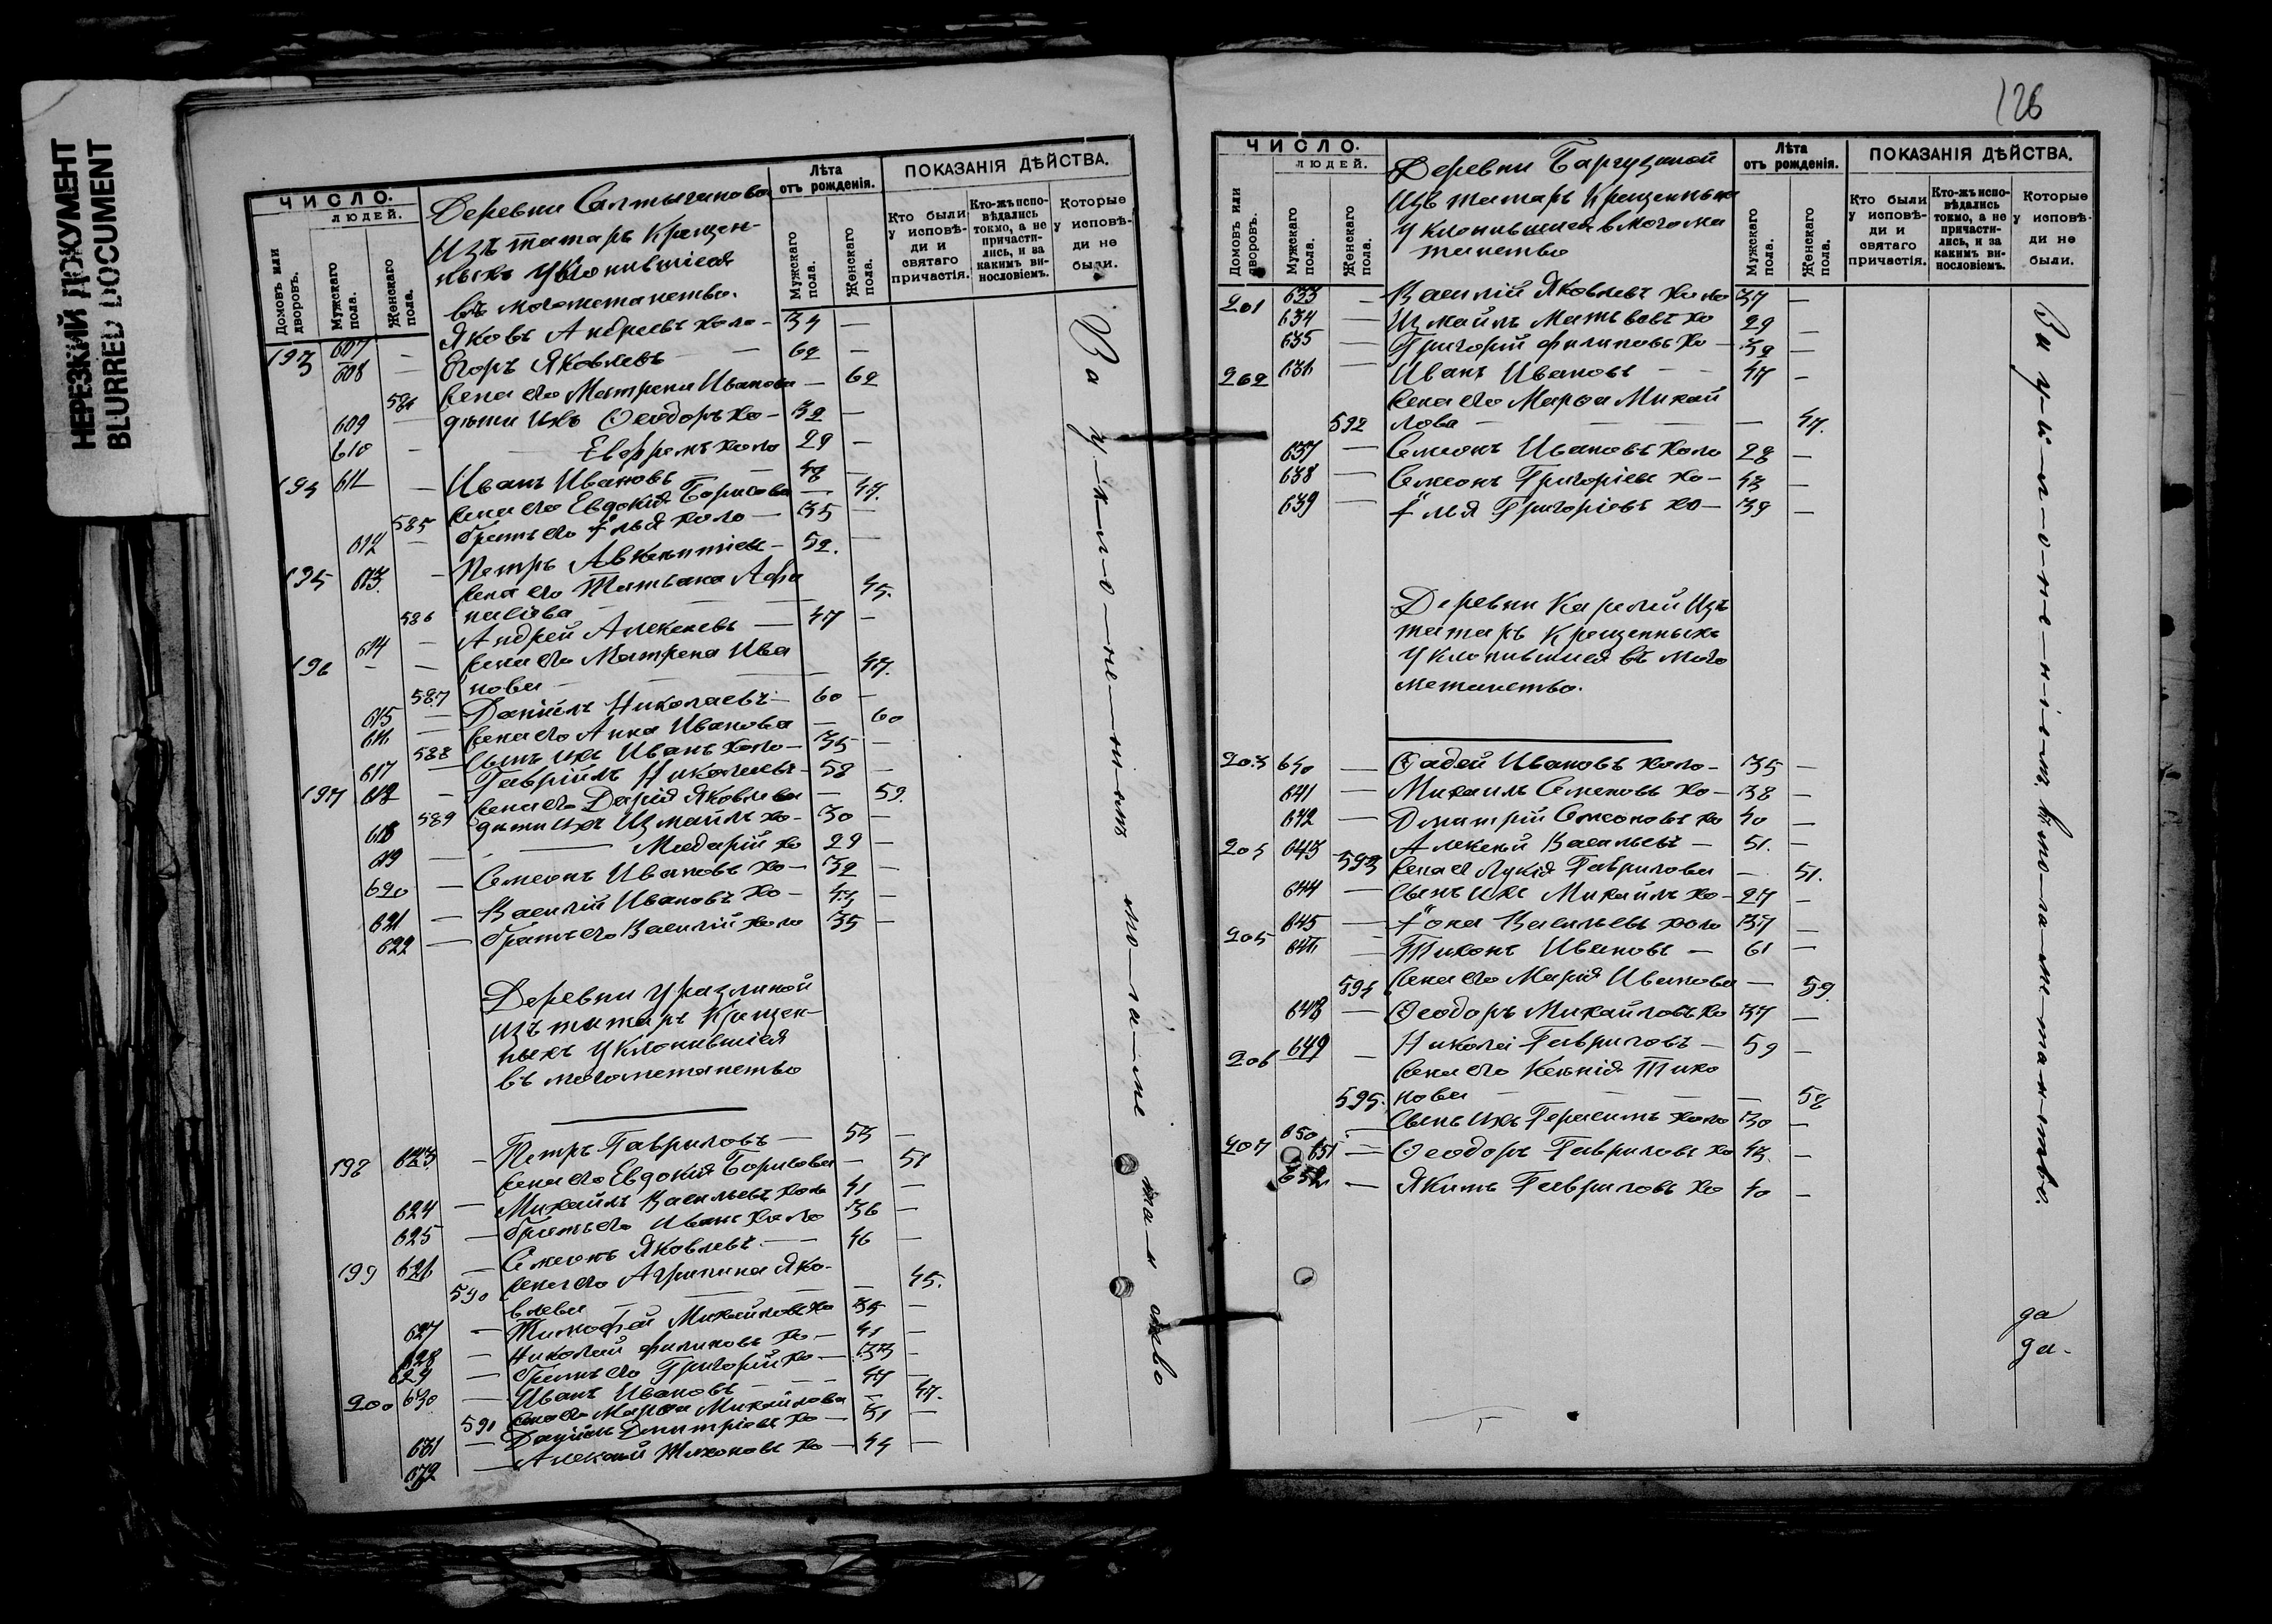 НЕРЕЗКИЙ ДОКУМЕНТ
BLURRED DOCUMENT
ЧИСЛО.
ЛЮДЕЙ.
Домовъ или дворовъ.
Мужскаго пола.
Женскаго пола.
Деревни Салтыгановой
Изъ татаръ крещен-
ныхъ уклонившіеся
въ могометанство.
Лѣта отъ рожденія.
Мужскаго пола.
Женскаго пола.
ПОКАЗАНІЯ ДѢЙСТВА.
Кто были у исповѣди и святаго причастія.
Кто-жъ исповѣдались токмо, а не причастились, и за какимъ винословіемъ.
Которые у исповѣди не были.
193 607 — Яковъ Андреевъ холо- 34 —
608 — Егоръ Яковлевъ — 62 —
584 Жена его Матрена Иванова — 62
609 — дѣти ихъ Ѳеодоръ хо- 32 —
610 — Ефремъ холо 29 —
194 611 — Иванъ Ивановъ — 48 —
585 Жена его Евдокія Борисова — 47.
612 — братъ его Илья холо — 35 —
195 613. — Петръ Авксентіевъ — 52. —
Жена его Татьана Афа
586 насіева — 45.
196 614 — Андрей Алексеевъ — 47 —
Жена его Матрена Ива
587 нова — 47.
615 — Даніилъ Николаевъ — 60 —
616 588 Жена его Анна Иванова — 60
617 — Сынъ ихъ Иванъ холо- 35 —
197 618 — Гавріилъ Николаевъ- 58 —
589 Жена его Дарія Яковлева — 59.
618 дѣти ихъ Измайлъ хо- 30 —
619 — Макарій хо 29 —
620 — Семеонъ Ивановъ хо- 32 —
621 — Василій Ивановъ хо- 43 —
622 — братъ его Василій холо 35 —
Деревни Уразлиной
изъ татаръ крещен-
ныхъ уклонившіеся
въ могометанство
198 623 — Петръ Гавриловъ — 53 —
Жена его Евдокія Борисова — 51
624 — Михайлъ Васильевъ холо 41 —
625 — братъ его Иванъ холо 36 —
199 626 — Семеонъ Яковлевъ — 46 —
590 Жена его Агрипина Яко-
влева — 45.
627 — Тимофей Михайловъ хо 35 —
628 — Николай Филиповъ хо — 41 —
629 — братъ его Григорій хо — 33 —
200 630 — Иванъ Ивановъ — 47 —
591 Жена его Марфа Михайлова — 47.
631 — Даніилъ Дмитріевъ хо — 51 —
632 — Алексѣй Тихоновъ хо — 44 —
За уклоненіемъ
126
ЧИСЛО.
ЛЮДЕЙ.
Домовъ или дворовъ.
Мужскаго пола.
Женскаго пола.
Деревни Баргузиной
Изъ татаръ крещенныхъ
уклонившіеся в могоме
танство
Лѣта отъ рожденія.
Мужскаго пола.
Женскаго пола.
ПОКАЗАНІЯ ДѢЙСТВА.
Кто были у исповѣди и святаго причастія.
Кто-жъ исповѣдались токмо, а не причастились, и за какимъ винословіемъ.
Которые у исповѣди не были.
201 633 — Василій Яковлевъ холо 37 —
634 — Измайлъ Матвѣевъ хо 29 —
635 — Григорій Филиповъ хо — 32 —
202 636 — Иванъ Ивановъ — 47 —
Жена его Марфа Михай
592 лова — 47.
637 — Семеонъ Ивановъ холо 28 —
638 — Семеонъ Григоріевъ хо — 43 —
639 — Илья Григоріевъ хо — 39 —
Деревни Карелий Изъ
татаръ крещенныхъ
уклонившіеся въ мого
метанство.
203 640 — Ѳадей Ивановъ холо — 35 —
641 — Михаилъ Семеновъ хо — 38 —
642 — Дмитрій Семеоновъ хо 40 —
204 643 — Алексѣй Васильевъ — 51. —
593 Жена его Лукія Гаврилова — 51.
644 — Сынъ ихъ Михаилъ хо- 27 —
645 — Іона Васильевъ холо 37 —
205 646 — Тихонъ Ивановъ — 61 —
594 Жена его Марія Иванова — 59.
648 — Ѳеодоръ Михайловъ хо 37 —
206 649 — Николаі Гавриловъ — 59 —
Жена его Ксенія Тихо
595. нова — 58
650 — Сынъ ихъ Герасимъ холо 30 —
207 651 — Ѳеодоръ Гавриловъ хо 43. —
652 — Якимъ Гавриловъ хо 40 —
За уклоненіемъ
да
да-